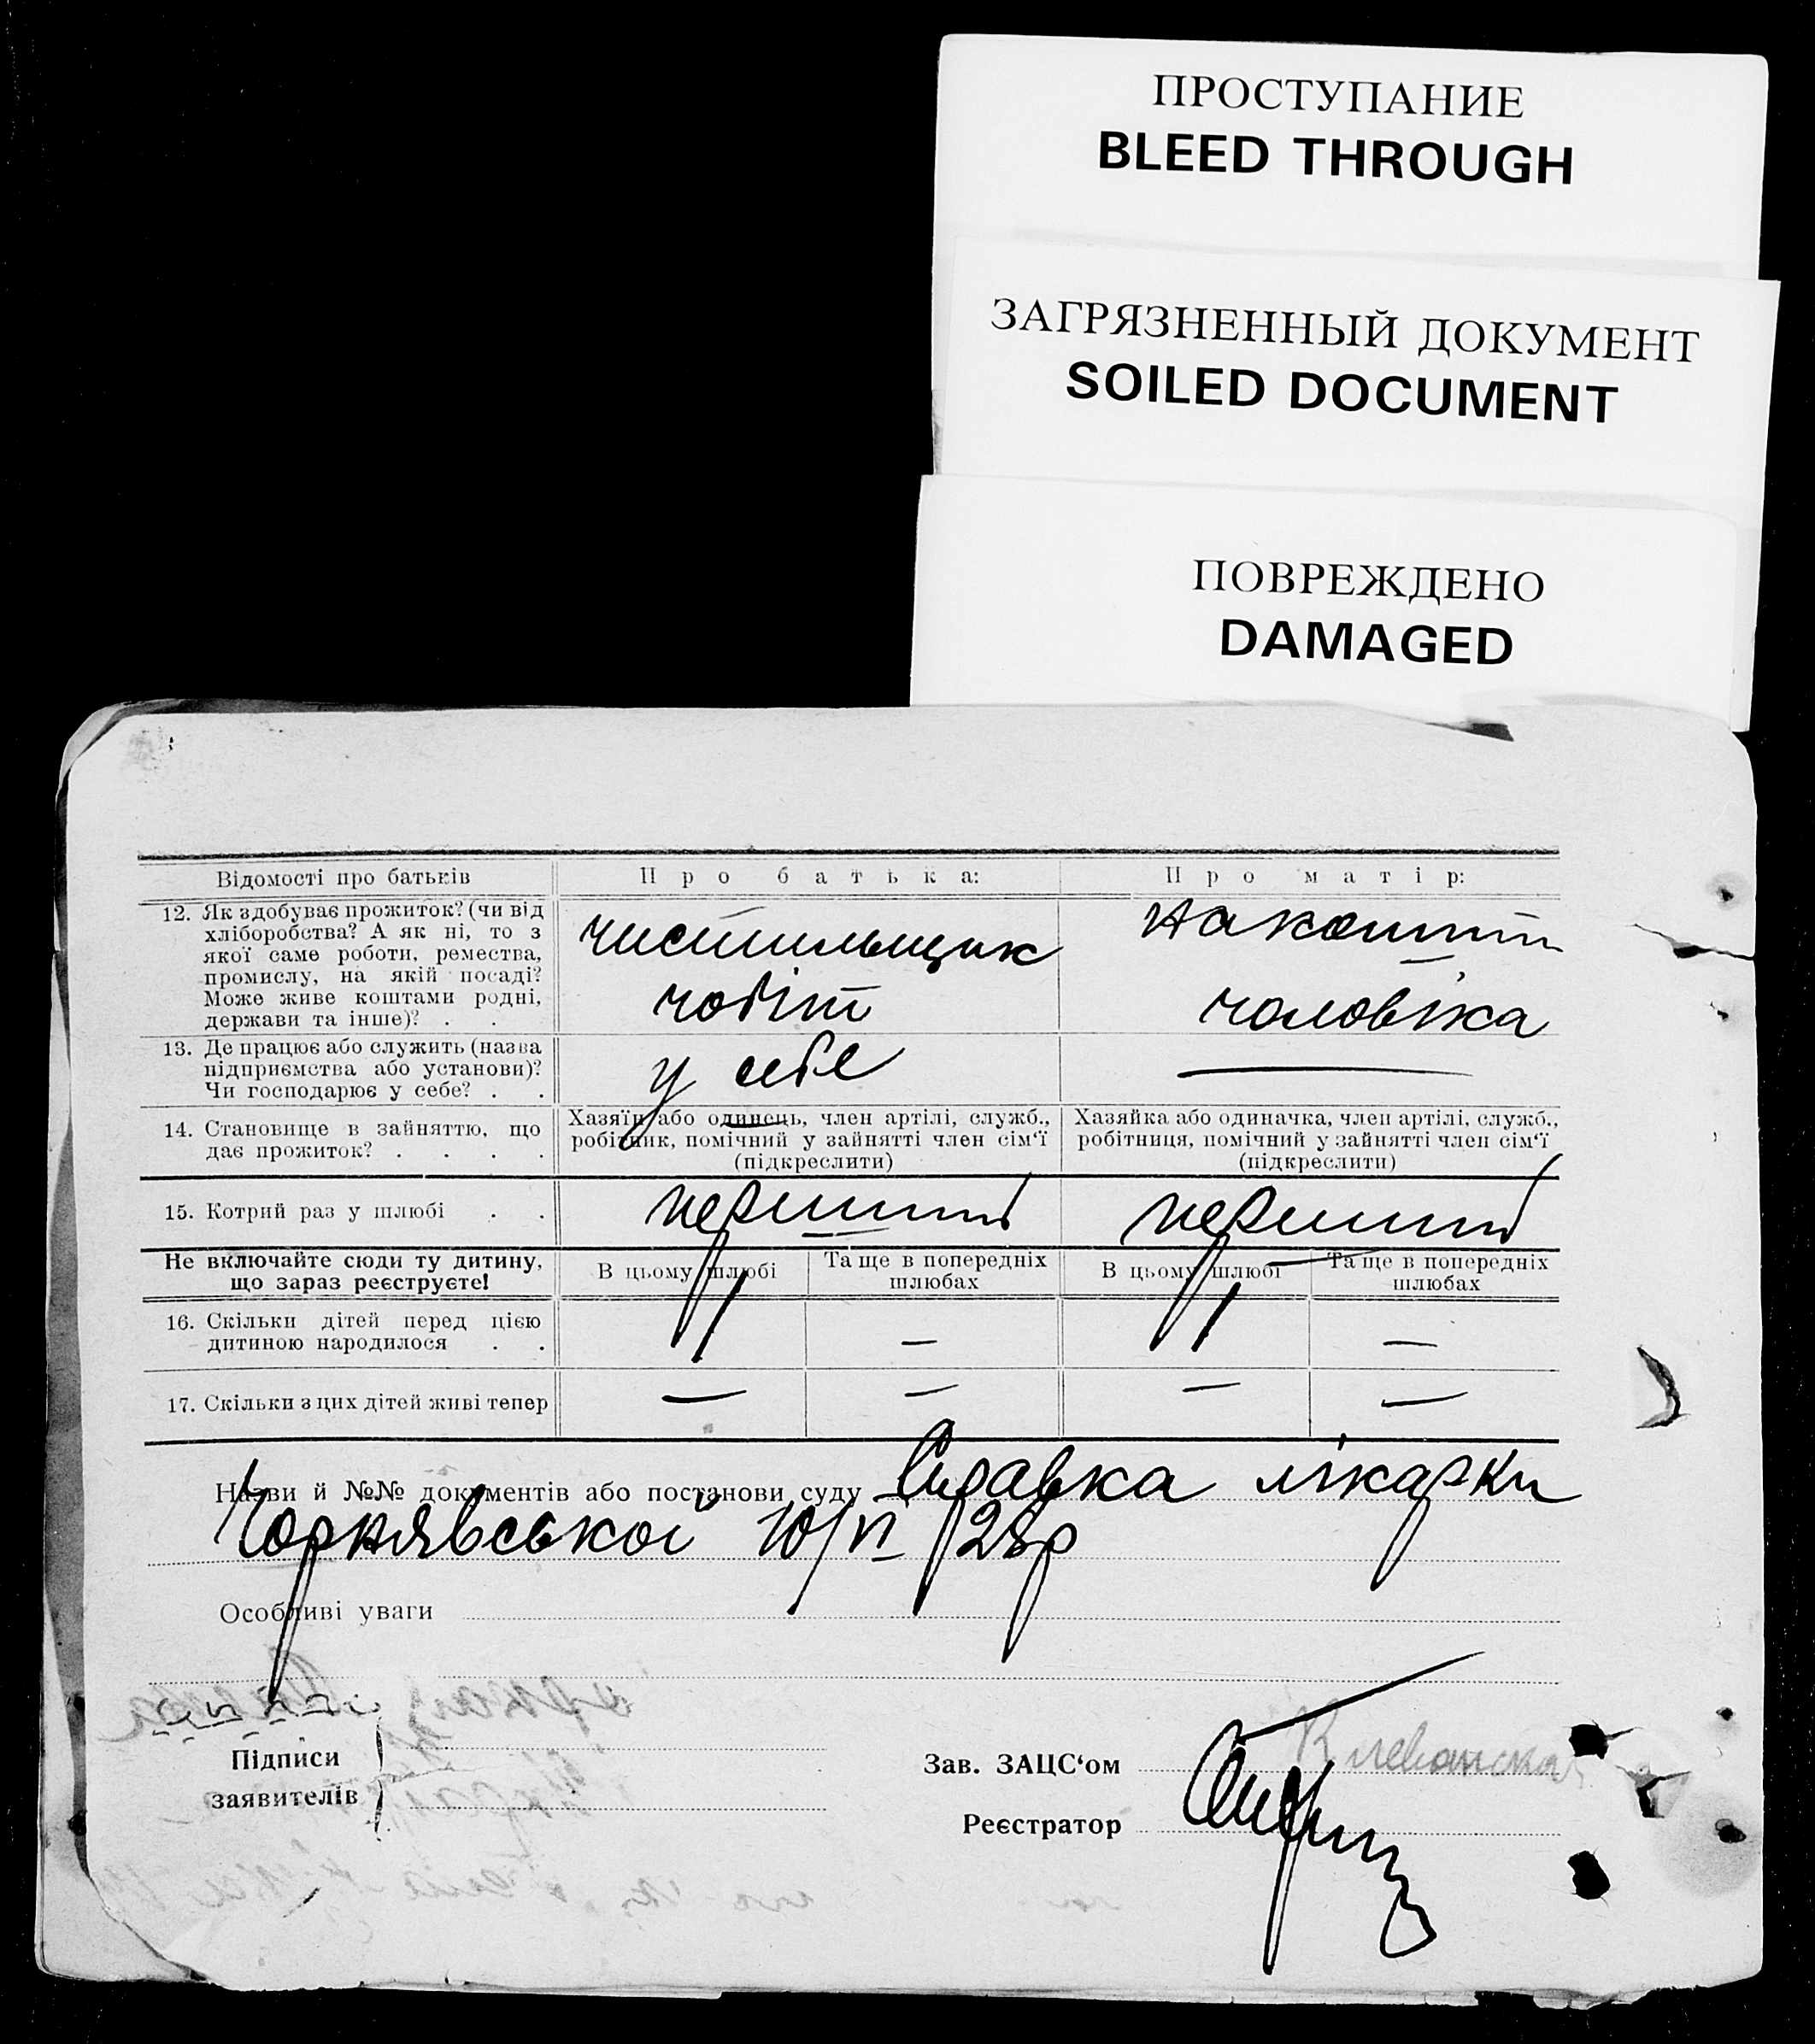 ПРОСТУПАНИЕ
BLEED THROUGH
ЗАГРЯЗНЕННЫЙ ДОКУМЕНТ
SOILED DOCUMENT
ПОВРЕЖДЕНО
DAMAGED
Відомості про батьків
Про батька:
Про матір:
12. Як здобуває прожиток? (чи від
хліборобства? А як ні, то з
якої саме роботи, ремества,
промислу, на якій посаді?
Може живе коштами родні,
держави та інше)? . .
чистильщик
чобіт
на кошти
чоловіка
13. Де працює або служить (назва
підприємства або установи)?
Чи господарює у себе? . .
у себе
—
14. Становище в зайняттю, що
дає прожиток? . . . .
Хазяїн або одинець, член артілі, служб.,
робітник, помічний у зайнятті член сім‘ї
(підкреслити)
Хазяйка або одиначка, член артілі, служб.,
робітниця, помічний у зайнятті член сім‘ї
(підкреслити)
15. Котрий раз у шлюбі . .
перший
перший
Не включайте сюди ту дитину,
що зараз реєструєте!
В цьому шлюбі
Та ще в попередніх
шлюбах
В цьому шлюбі
Та ще в попередніх
шлюбах
16. Скільки дітей перед цією
дитиною народилося . .
1 — 1 —
17. Скільки з цих дітей живі тепер
— — — —
Назви й №№ документів або постанови суду Справка лікарки
Чорнявської 10/VI 28р
Особливі уваги
Підписи
заявителів
Зав. ЗАЦС‘ом
Реєстратор